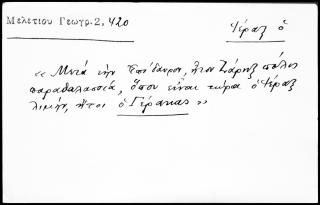 Μελετίου Γεωγρ. 2, 420
Ψέραξ ὁ
« Μετά την Ἐπίδαυρον, ἦτον Ζάρηξ πόλις
παραθαλασσία, ὅπου εἶναι τώρα ὁ Ψέραξ
λιμήν, ἤτοι ὁ Γέρακας »